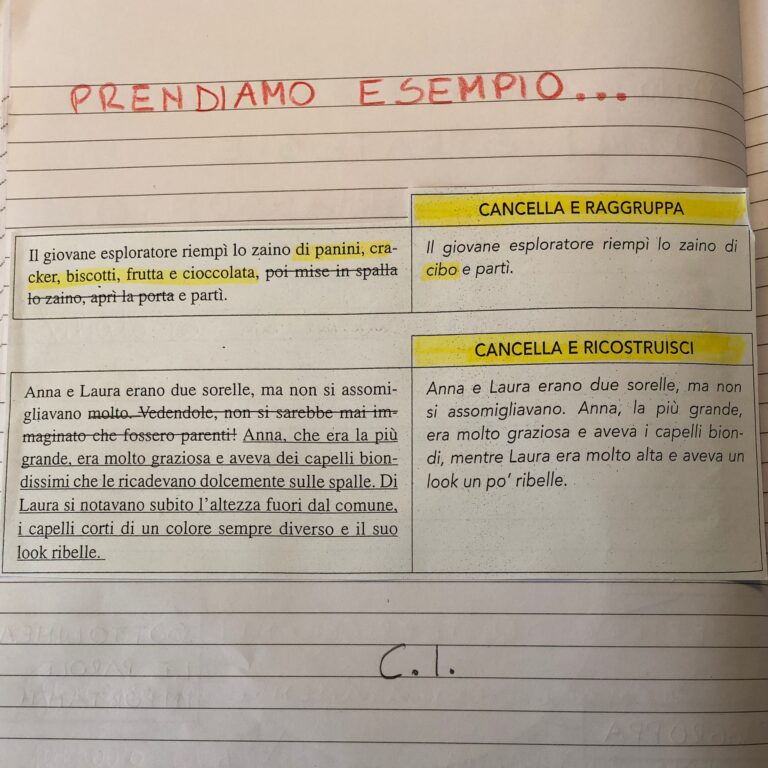 PRENDIAMO ESEMPIO...
CANCELLA E RAGGRUPPA
Il giovane esploratore riempì lo zaino di panini, cra-
cker, biscotti, frutta e cioccolata, poi mise in spalla
lo zaino, aprì la porta e partì.
Il giovane esploratore riempì lo zaino di
cibo e partì.
CANCELLA E RICOSTRUISCI
Anna e Laura erano due sorelle, ma non si assomi-
gliavano molto. Vedendole, non si sarebbe mai im-
maginato che fossero parenti! Anna, che era la più
grande, era molto graziosa e aveva dei capelli bion-
dissimi che le ricadevano dolcemente sulle spalle. Di
Laura si notavano subito l'altezza fuori dal comune,
i capelli corti di un colore sempre diverso e il suo
look ribelle.
Anna e Laura erano due sorelle, ma non
si assomigliavano. Anna, la più grande,
era molto graziosa e aveva i capelli bion-
di, mentre Laura era molto alta e aveva un
look un po' ribelle.
C.I.